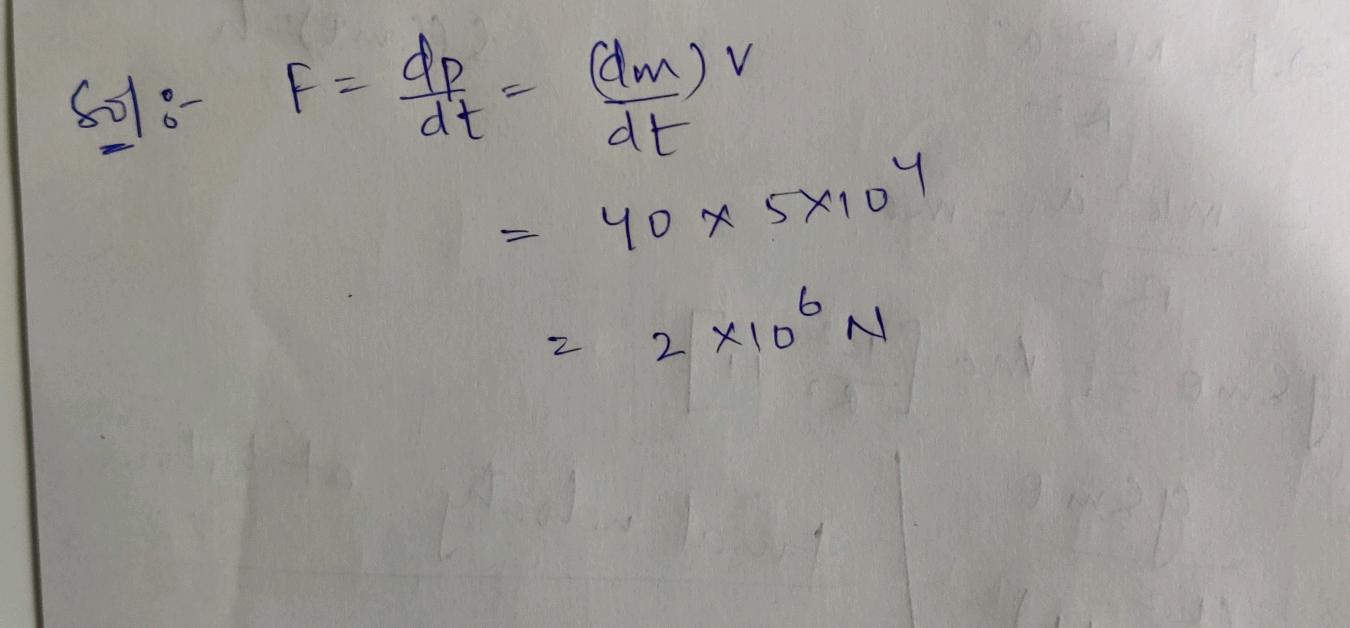 Sol:- F = dp/dt = (dm)/dt v
= 40 x 5x10^4
= 2 x10^6 N